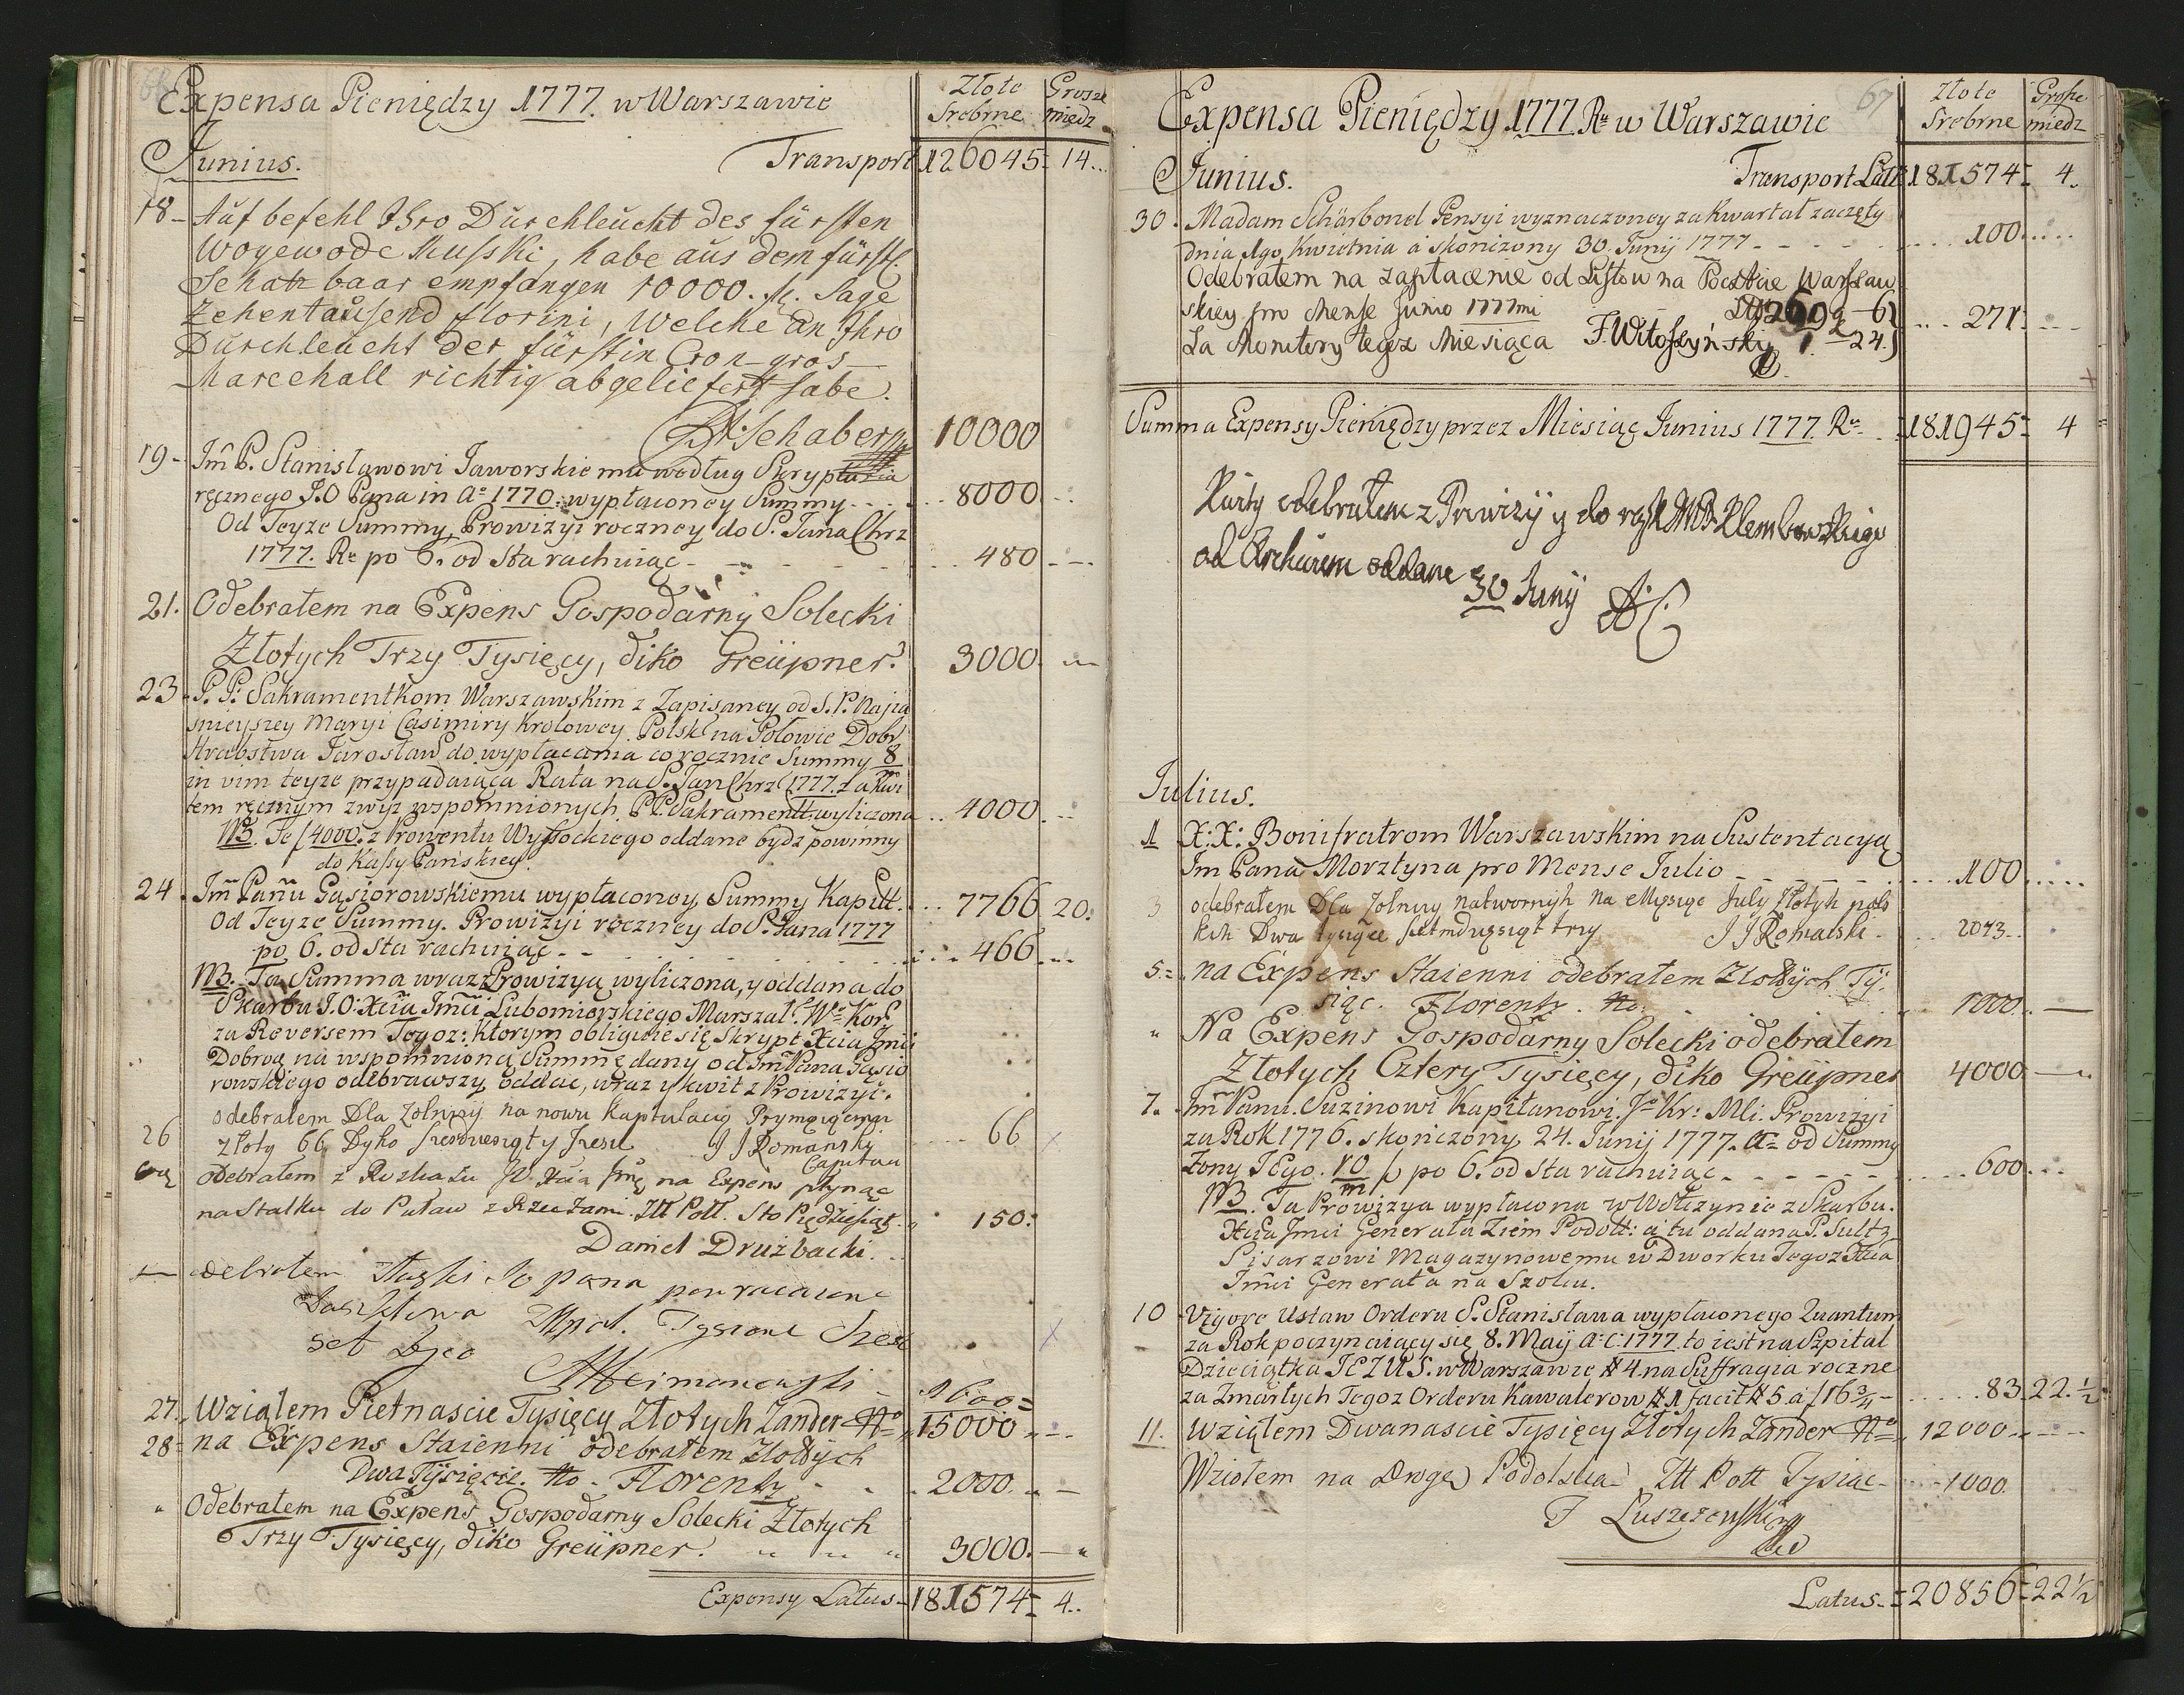 66
Expensa Pieniędzy 1777. w Warszawie
Złote Srebrne
Grosze miedz
Junius.
Transport 126045 = 14...
18 - Auf befehl Ihro Durchleucht des fürsten
Woyewode Russki, habe aus dem fürstl:
Schatz baar empfangen 10000. fl. Sage
Zehentausend florini, welche an Ihro
Durchleucht der fürstin Cron-gros
Marechall richtig abgeliefert habe.
Schaber 10000
19 - Jm̃ P. Stanisławowi Jaworskiemu według Skryptu
ręcznego J.O Pana in A° 1770. wypłaconey Summy - - - 8000 - -
Od Teyże Summy, Prowizyi roczney do S. Jana Chrz
1777. Ru po 6. od sta rachuiąc - - - 480 - -
21. Odebrałem na Expens Gospodarny Solecki
Złotych Trzy Tysięcy, diko Greüpner. 3000. -
23 - P. P: Sakramentkom Warszawskim z Zapisaney od S. P. Najia
snieyszey Maryi Casimiry Krolowey Polsk: na Połowie Dobr
Hrabstwa Jarosław do wypłacania corocznie Summy 8
in vim teyże przypadaiąca Rata na S. Jan Chrz: 1777. za kwi
tem ręcznym zwyz wspomnionych P P. Sakrament: wyliczona .. 4000. -
NB. Te f 4000. z Prowentu Wysockiego oddane bydz powinny
do Kassy Pańskiey.
24. Jm̃ Panu Gąsiorowskiemu wypłaconey Summy Kapitt. ... 7766 20.
Od Teyże Summy. Prowizyi roczney do S. Jana 1777
po 6. od sta rachuiąc - - - 466 - -
NB. Ta Summa wraz z Prowizyą wyliczona, y oddana do
Skarbu J.O: Xcia Jmci Lubomirskiego Marszał: W° Kor:
za Reversem Tegoz: Ktorym obliguie się Skrypt Xcia Jmci
Dobrog na wspomnioną Summę dany od Jm̃ Pana Gąsio
rowskiego odebrawszy oddac, wraz y kwit z Prowizyi.
26 odebrałem Dla Zołnizy na nowu Kaptulacij Prymoiącemi
złoty 66 Dyko szesdziesiąt y szesc J J Romanski Capitan 66 x
odebrałem z Rozkazu JO Xcia Jmci na Expens płynąc
na Statku do Puław z Rzeczami Złł Poll. Sto Piędziesiąt 150:
Daniel Drużbacki.
odebrałem
Tysione Szesc
set x
Heimanowski 1600 =
27. Wziąłem Pietnascie Tysięcy Złotych Zander 15000 - -
28 = na Expens Staienni odebrałem Złotych
Dwa Tysięcie. Florentz 2000. - -
" Odebrałem na Expens Gospodarny Solecki Złotych
Trzy Tysięcy, diko Greüpner. 3000. - "
Expensy Latus - 181574 = 4..
67
Expensa Pieniędzy 1777 Ru w Warszawie
Złote Srebrne
Grosze miedz
Junius.
Transport Lat: 181574 = 4.
30. Madam Schärbonel Pensyi wyznaczoney za kwartał zaczęty
dnia 1go Kwietnia a skonczony 30. Junij 1777 - - - 100.....
Odebrałem na zapłacenie od Listow na Poczcie Warszaw
skiey pro Mense Junio 1777mi 269 - 6
Za Monitory tegoz Miesiąca F. Witoszyński 1 - 24. 271. - -
Summa Expensy Pieniędzy przez Miesiąc Junius 1777. Ru. - 181945 = 4
Kwity odebrałem z Prewizij y do rąk JMP. Klembowskiego
od Archiwum oddane 30 Junij AC
Julius.
1 X: X: Bonifratrom Warszawskim na Sustentacyą
Jm Pana Morztyna pro Mense Julio - - - 100.....
3 odebrałem Dla Zołnizy natwornyh na Miesiąc July złotyh pols
kich Dwa tysiące siedmdziesiąt trzy J J Romanski - 2073..
5 = na Expens Staienni odebrałem Złotych Ty:
siąc. Florentz. 1000. -
" Na Expens Gospodarny Solecki odebrałem
Złotych Cztery Tysięcy, diko Greüpner 4000 - "
7. Jm̃ Panu. Suzinowi Kapitanowi J° Kr: Mci. Prowizyi
za Rok 1776. skończony 24. Junij 1777. A° od Summy
Zony JEgo. 10/m f po 6. od sta rachuiąc - - - 600...
NB. Ta Prowizya wypłacona w Wołczynie z Skarbu.
Xcia Jmci Generała Ziem Podoll: a tu oddana P. Sultz
Pisarzowi Magazynowemu w Dworku Tegoz Xcia
Jmci Generała na Szolcu.
10 Vigore Ustaw Orderu S. Stanisława wypłaconego Quantum
za Rok poczynaiący się 8. Maij A: C: 1777 to iest na Szpital
Dzieciątka JEZUS. w Warszawie # 4 na Suffragia roczne
za Zmarłych Tegoz Orderu Kawalerow # 1 facit # 5 a f 16 3/4 - 83. 22. 1/2
11. Wziąłem Dwanascie Tysięcy Złotych Zander 12000 - -
Wziołem na Drogę Podolską Złł Poll Tysiac - 1000.
F Luszczewski
Latus - = 20856 = 22 1/2